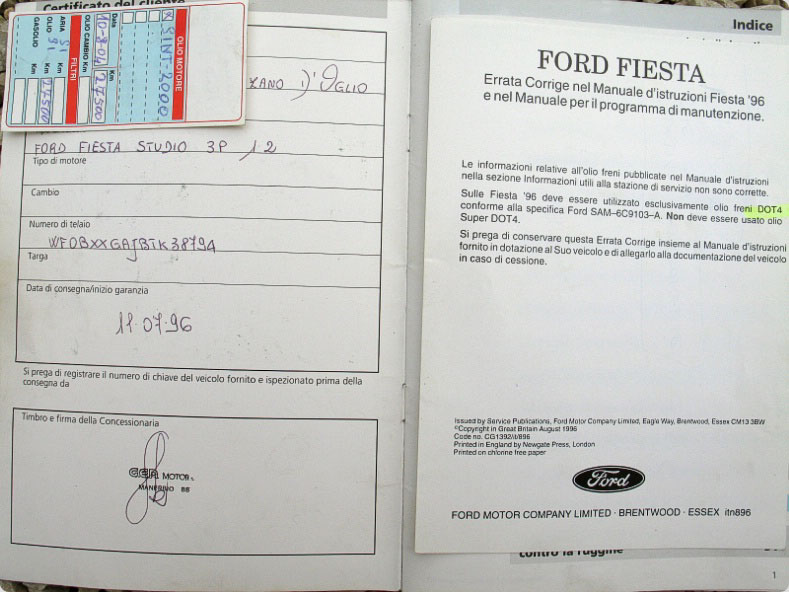 Certificato del cliente
OLIO MOTORE
SINT 2000
Data
10-8-04
OLIO CAMBIO Km
Km
24500
FILTRI
ARIA SI Km
OLIO SI Km 24500
GASOLIO Km
D'OGLIO
FORD FIESTA STUDIO 3P 1.2
Tipo di motore
Cambio
Numero di telaio
Targa
Data di consegna/inizio garanzia
11.07.96
Si prega di registrare il numero di chiave del veicolo fornito e ispezionato prima della
consegna da
Timbro e firma della Concessionaria
MOTOR
Indice
FORD FIESTA
Errata Corrige nel Manuale d'istruzioni Fiesta '96
e nel Manuale per il programma di manutenzione.
Le informazioni relative all'olio freni pubblicate nel Manuale d'istruzioni
nella sezione Informazioni utili alla stazione di servizio non sono corrette.
Sulle Fiesta '96 deve essere utilizzato esclusivamente olio freni DOT4
conforme alla specifica Ford SAM–6C9103–A. Non deve essere usato olio
Super DOT4.
Si prega di conservare questa Errata Corrige insieme al Manuale d'istruzioni
fornito in dotazione al Suo veicolo e di allegarlo alla documentazione del veicolo
in caso di cessione.
Issued by Service Publications, Ford Motor Company Limited, Eagle Way, Brentwood, Essex CM13 3BW
©Copyright in Great Britain August 1996
Code no. CG1392/it/896
Printed in England by Newgate Press, London
Printed on chlorine free paper
Ford
FORD MOTOR COMPANY LIMITED · BRENTWOOD · ESSEX itn896
contro la ruggine
1